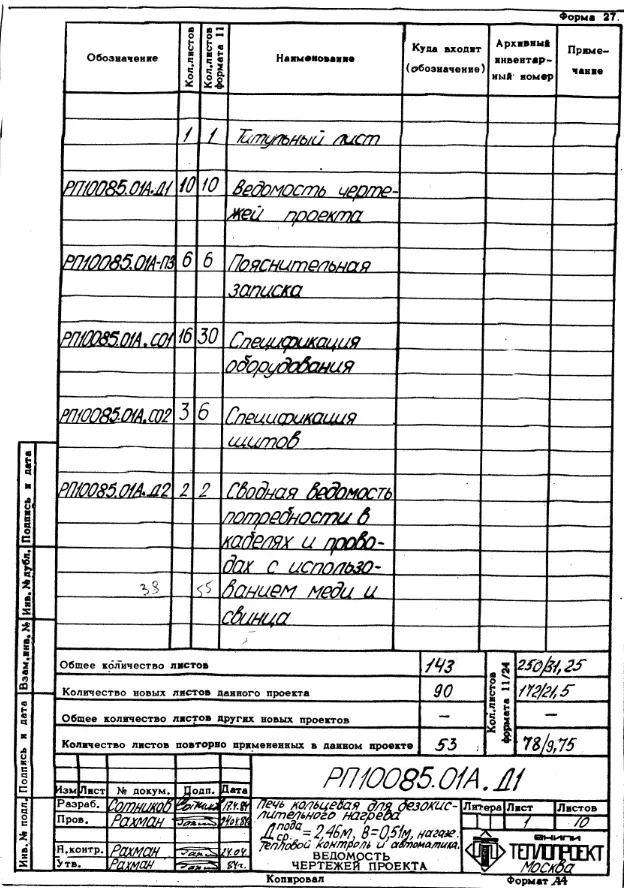 Форма 27.
Обозначение Кол.листов Кол.листов формата 11 Наименование Куда входит (обозначение) Архивный инвентарный номер Примечание
1 1 Титульный лист
РП10085.01А.Д1 10 10 Ведомость черте-
жей проекта
РП10085.01А-ПЗ 6 6 Пояснительная
записка
РП10085.01А.СО1 16 30 Спецификация
оборудования
РП10085.01А.СО2 3 6 Спецификация
щитов
РП10085.01А.Д2 2 2 Сводная ведомость
потребности в
кабелях и прово-
дах с использо-
38 55 ванием меди и
свинца
Общее количество листов 143 250/31,25
Количество новых листов данного проекта 90 172/21,5
Общее количество листов других новых проектов — —
Количество листов повторно примененных в данном проекте 53 78/9,75
Кол.листов формата 11/24
Инв.№ подл. Подпись и дата Взам.инв.№ Инв.№ дубл. Подпись и дата
РП10085.01А.Д1
Изм Лист № докум. Подп. Дата
Разраб. Сотников 17.4.84
Пров. Рахман 24.04.84
Н.контр. Рахман 24.04
Утв. Рахман 84г.
Печь кольцевая для безокис-
лительного нагрева
Д пода ср. = 2,46м, В=0,51м, на газе.
Тепловой контроль и автоматика.
ВЕДОМОСТЬ
ЧЕРТЕЖЕЙ ПРОЕКТА
Литера Лист Листов
1 10
ВНИПИ
ТЕПЛОПРОЕКТ
Москва
Копировал Формат А4